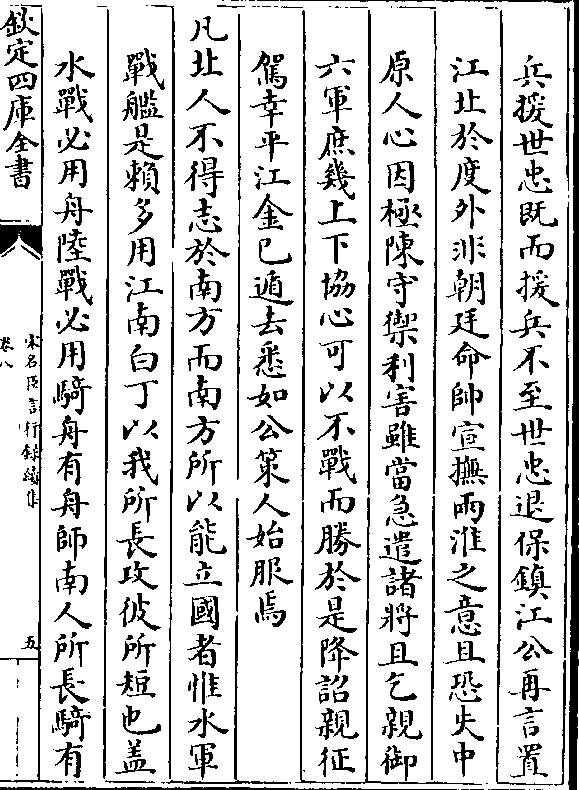 兵援世忠既而援兵不至世忠退保鎮江公再言置
江北於度外非朝廷命帥宣撫兩淮之意且恐失中
原人心因極陳守禦利害雖當急遣諸將且乞親御
六軍庶幾上下協心可以不戰而勝於是降詔親征
駕幸平江金已遁去悉如公策人始服焉
凡北人不得志於南方而南方所以能立國者惟水軍
戰艦是賴多用江南白丁以我所長攻彼所短也盖
水戰必用舟陸戰必用騎舟有舟師南人所長騎有
欽定四庫全書
宋名臣言行録續集
卷八
五